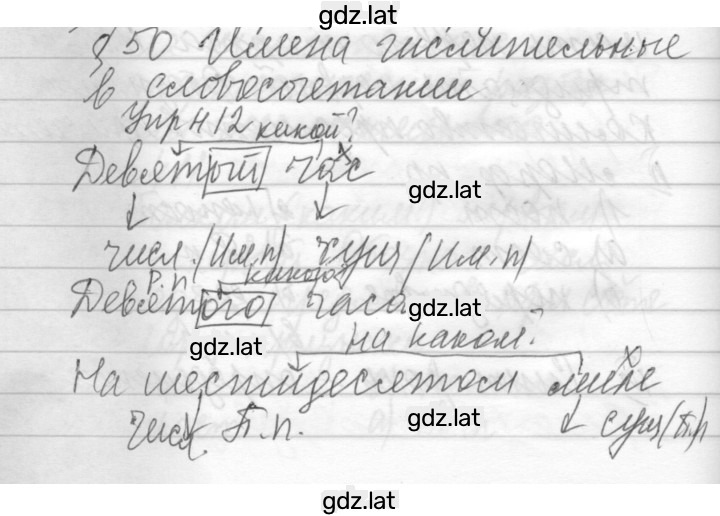 gdz.lat
§ 50 Имена числительные
в словосочетании
Упр 412 какой?
Девятый час х
gdz.lat
числ. (Им.п) сущ (Им.п)
Р.п какого
Девятого часа
gdz.lat
gdz.lat
на каком?
На шестидесятом миле х
числ П.п. сущ (П.п)
gdz.lat
gdz.lat